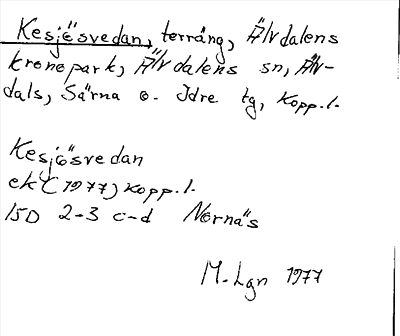 Kesjösvedan, terräng, Älvdalens
kronopark, Älvdalens sn, Älv-
dals, Särna o. Idre tg, Kopp.l.
Kesjösvedan
ek (1977) Kopp.l.
15D 2-3 c-d Nornäs
M. Lgn 1977